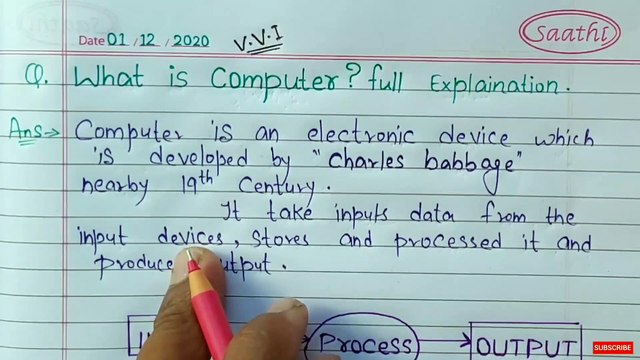 Date 01/12/2020 V.V.I Saathi
Q. What is Computer? full Explaination.
Ans→ Computer is an electronic device which
is developed by "Charles babbage"
nearby 19th Century.
It take inputs data from the
input devices, stores and processed it and
output.
Process → OUTPUT
SUBSCRIBE